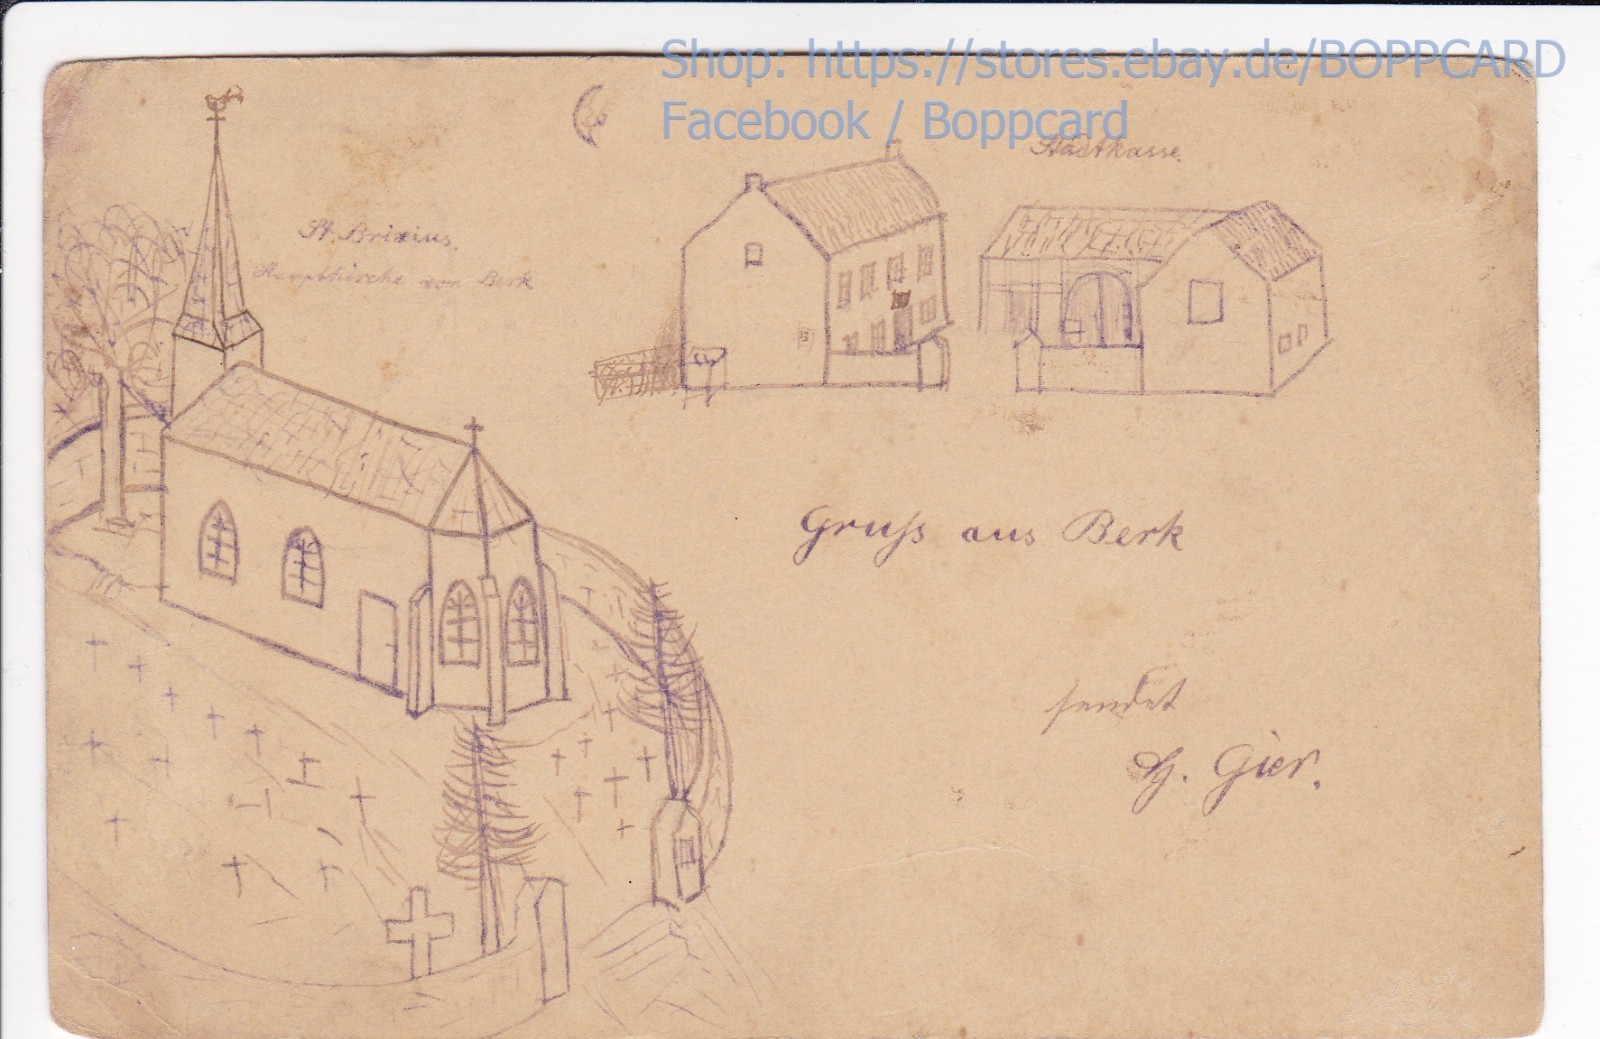 Shop: https://stores.ebay.de/BOPPCARD
Facebook / Boppcard
Stadtkasse.
St. Brixius.
Hauptkirche von Berk
Gruß aus Berk
sendet
H. Gier.